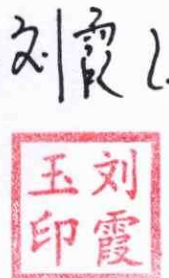 刘霞
刘霞
玉印